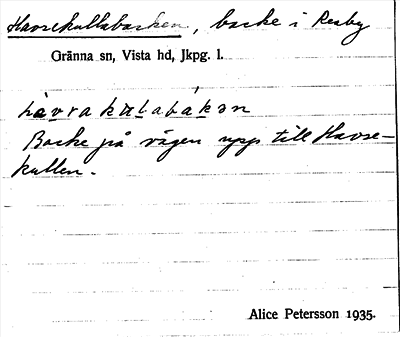 Havrekullabacken, backe i Reaby
Gränna sn, Vista hd, Jkpg. l.
hàvrakɯlabákən
Backe på vägen upp till Havre-
kullen.
Alice Petersson 1935.